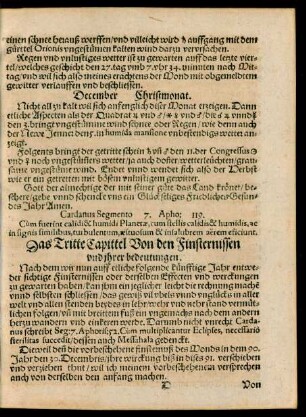 einen schnee herauß werffen/vnd villeicht wird ☿ auffgang mit dem
gürtel Orionis vngestümen kalten wind darzu vervrsachen.
Regen vnd vnlustiges wetter ist zu gewarten auff das letzte vier-
tel/welches geschicht den 27. tag vmb 7. vhr 34. minuten nach Mit-
tag/vnd wil sich also meines erachtens der Mond mit obgemeldtem
gewitter verlauffen vnd beschliessen.
December Christmonat.
Nicht all zu kalt wil sich anfenglich diser Monat erzeigen. Dann
etliche Aspecten als der Quadrat
den 3. bringt vngestümme wind schnee oder Regen / wie denn auch
der Newe Jenner den 5. in humida mansione vnbestendigs wetter an-
zeigt.
Folgents bringt der getritte schein den 11. der Congressus
vnd noch vngestümers wetter/ja auch donser wetterleüchten/grau-
same vngewitter. Ende vnd wendet sich also der Herbst
wie er ein getretten mit bösem vnlustigen gewitter.
Gott der almechtige der mit seiner güte das Land krönet/be-
schere/gebe vnnd schencke vns ein Glückseliges Fridliches Gesun-
des Jahr Amen.
Cardanus Segmento 7. Apho: 119.
Cùm fuerint calidi & humidi Planetæ, cum stellis calidis & humidis, ac
in signis similibus, turbulentum, æstuosum & insalubrem aërem efficiunt.
Das Tritte Capittel Von den Finsternussen
vnd ihrer bedeutungen.
Nach dem wir nun auff etliche folgende künfftige Jahr entwe-
der sichtige Finsternussen oder derselben Effecten vnd wirckungen
zu gewarten haben/kan ihm ein jeglicher leicht die rechnung machen
vnd selbsten schliessen/das gewiß vil vbels vnnd vnglücks in aller
welt vorhanden/welches bey so bösen vnrühigen vnd trübsee-
lichen folgen/vñ mit breitem fuß ein vngemachs nach dem andern
herzu wandern vnd einkeren werde. Darumb nicht vnrecht Carda-
nus schreibt Seg: 7. Aphoris: 52. Cum multiplicantur Eclipses, necessario
sterilitas succedit/dessen auch Messahala gedenckt.
Dieweil deñ die vorbeschehene finsternuß des Monds in dem 90.
Jahr den 30. Decembris/ihre wirckung biß in dises 91. verschieben
vnd verziehen thut/wil ich meinem vorbeschehenen versprechen
nach von derselben den anfang machen.
D Von